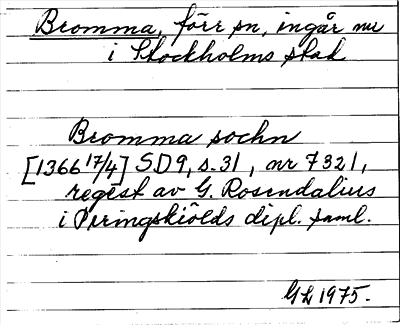 Bromma, förr sn, ingår nu
i Stockholms stad
Bromma sochn
[1366 17/4] SD9, s. 31, nr 7321,
regest av G. Rosendalius
i Peringskiölds dipl. saml.
GL 1975.